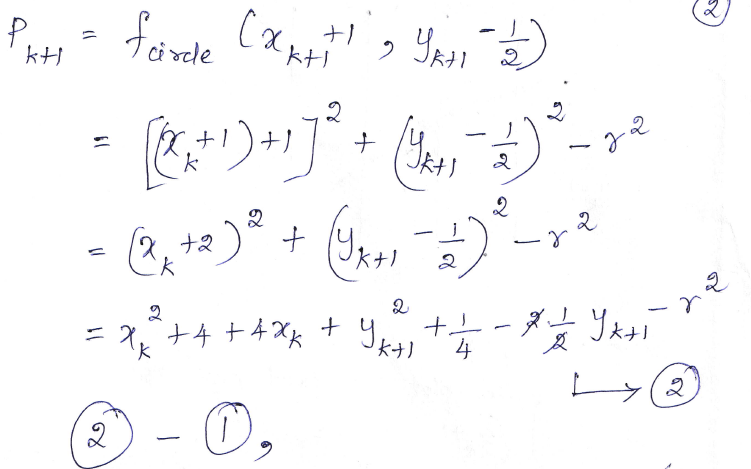 ②
P_{k+1} = f_{circle} (x_{k+1}+1 , y_{k+1} - 1/2)
= [(x_k+1)+1]² + (y_{k+1} - 1/2)² - r²
= (x_k+2)² + (y_{k+1} - 1/2)² - r²
= x_k² + 4 + 4x_k + y_{k+1}² + 1/4 - 2 1/2 y_{k+1} - r²
↳ ②
② - ①,